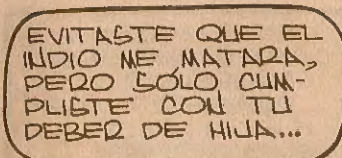 EVITASTE QUE EL
INDIO ME MATARA,
PERO SÓLO CUM-
PLISTE CON TU
DEBER DE HIJA...